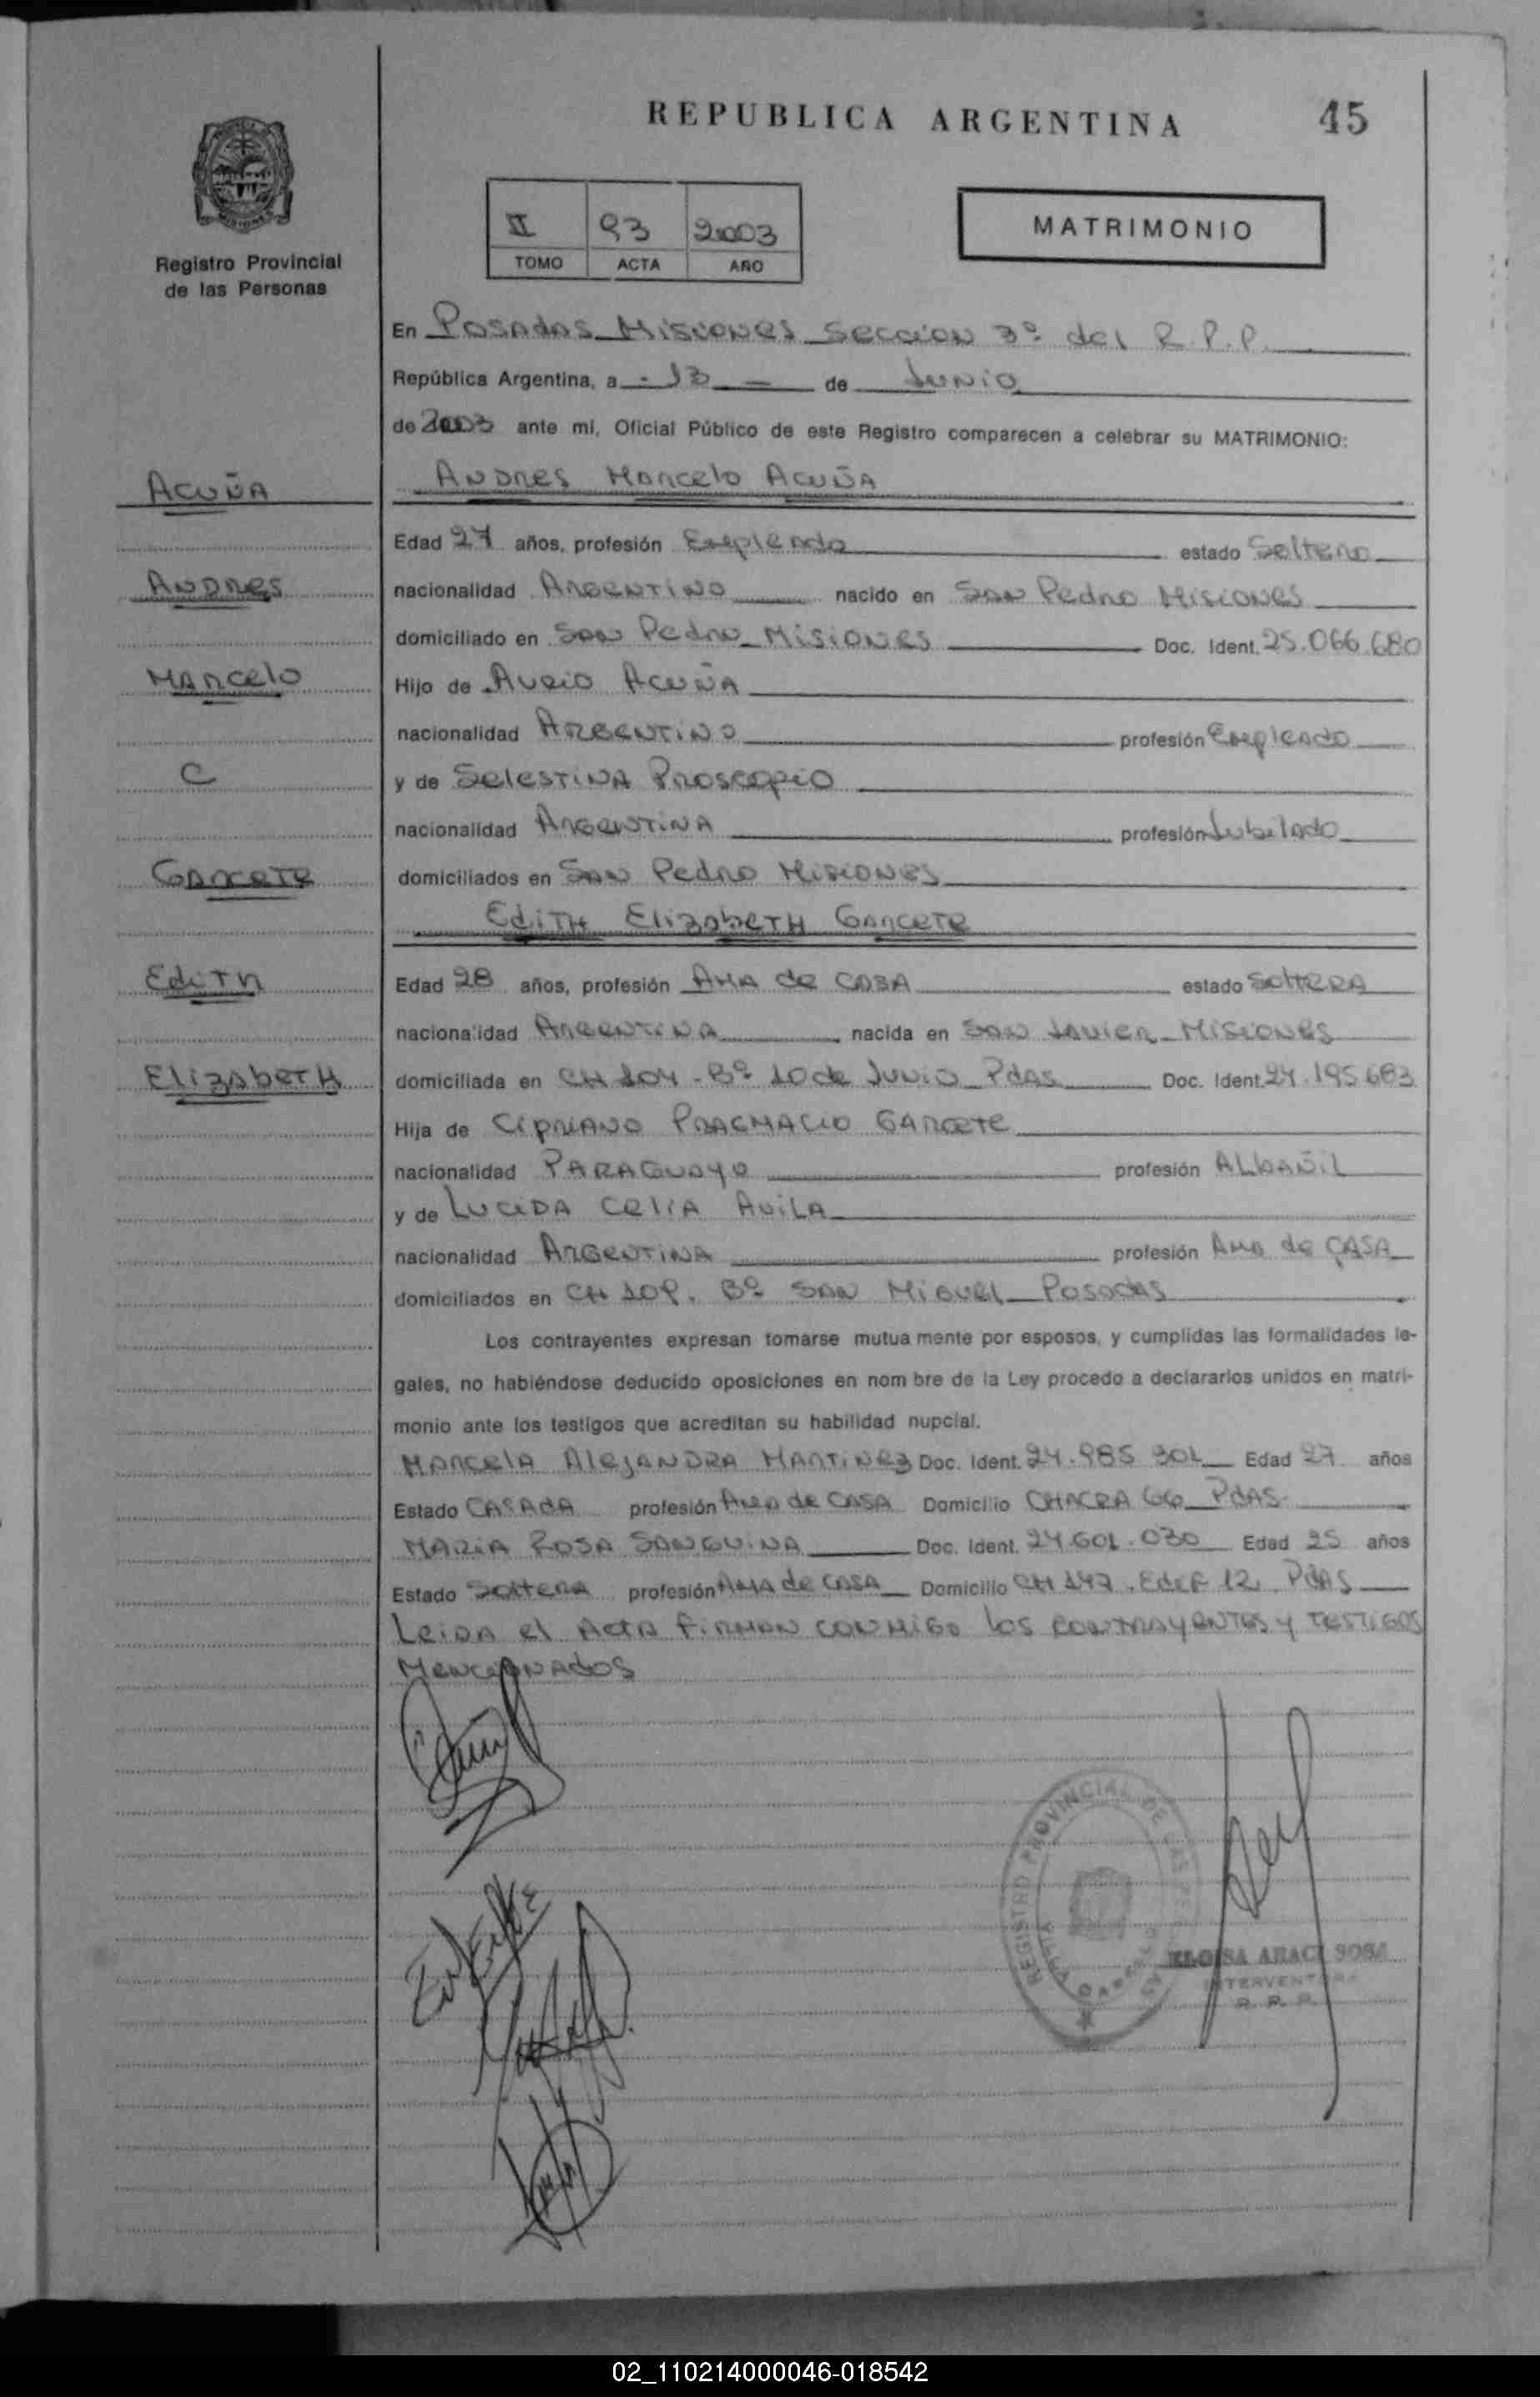 REPUBLICA ARGENTINA
45
Registro Provincial
de las Personas
II 93 2003
TOMO ACTA AÑO
MATRIMONIO
En Posadas Misiones Seccion 3º del R.P.P.
República Argentina, a 13 de Junio
de 2003 ante mí, Oficial Público de este Registro comparecen a celebrar su MATRIMONIO:
Acuña
Andres
Marcelo
C
Garcete
Edith
Elizabeth
Andres Marcelo Acuña
Edad 27 años, profesión Empleado estado Soltero
nacionalidad Argentino nacido en San Pedro Misiones
domiciliado en San Pedro Misiones Doc. Ident. 25.066.680
Hijo de Acuña
nacionalidad Argentino profesión Empleado
y de Selestina Proscopio
nacionalidad Argentina profesión Jubilado
domiciliados en San Pedro Misiones
Edith Elizabeth Garcete
Edad 28 años, profesión Ama de Casa estado Soltera
nacionalidad Argentina nacida en San Javier Misiones
domiciliada en CH 104 - Bº 10 de Junio Pdas Doc. Ident. 24.195.683
Hija de Cipriano Pragmacio Garcete
nacionalidad Paraguayo profesión Albañil
y de Lucida Celia Avila
nacionalidad Argentina profesión Ama de Casa
domiciliados en CH 109. Bº San Miguel Posadas
Los contrayentes expresan tomarse mutua mente por esposos, y cumplidas las formalidades le-
gales, no habiéndose deducido oposiciones en nom bre de la Ley procedo a declararlos unidos en matri-
monio ante los testigos que acreditan su habilidad nupcial.
Marcela Alejandra Martinez Doc. Ident. 24.985 301 Edad 27 años
Estado Casada profesión Ama de Casa Domicilio Chacra 66 Pdas.
Maria Rosa Sanguina Doc. Ident. 24.601.030 Edad 25 años
Estado Soltera profesión Ama de Casa Domicilio CH 147. Edif 12. Pdas
Leida el Acta firman conmigo los contrayentes y testigos
Mencionados
REGISTRO PROVINCIAL DE LAS
ELOISA ARACI SOSA
INTERVENTORA
R. P. P.
02_110214000046-018542